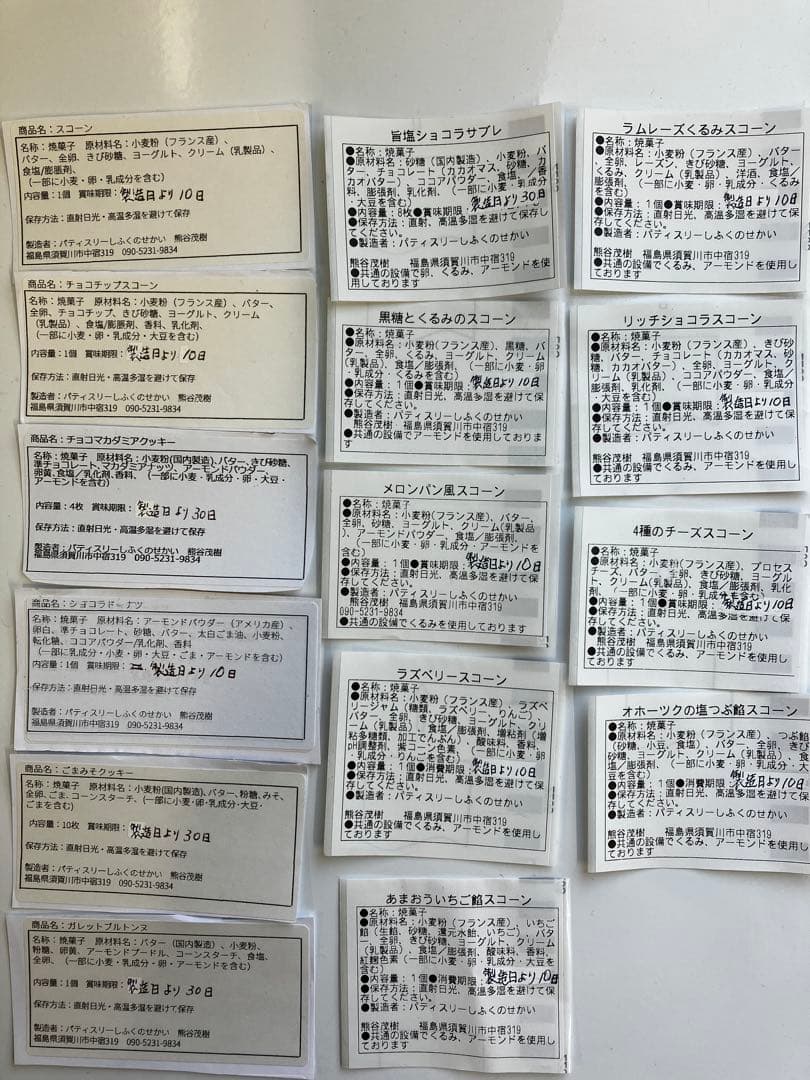 商品名：スコーン
名称：焼菓子　原材料名：小麦粉（フランス産）、
バター、全卵、きび砂糖、ヨーグルト、クリーム（乳製品）、
食塩/膨張剤、
（一部に小麦・卵・乳成分を含む）
内容量：1個　賞味期限：製造日より10日
保存方法：直射日光・高温多湿を避けて保存
製造者：パティスリーしふくのせかい　熊谷茂樹
福島県須賀川市中宿319　090-5231-9834
商品名：チョコチップスコーン
名称：焼菓子　原材料名：小麦粉（フランス産）、バター、
全卵、チョコチップ、きび砂糖、ヨーグルト、クリーム
（乳製品）、食塩/膨脹剤、香料、乳化剤、
（一部に小麦・卵・乳成分・大豆を含む）
内容量：1個　賞味期限：製造日より10日
保存方法：直射日光・高温多湿を避けて保存
製造者：パティスリーしふくのせかい　熊谷茂樹
福島県須賀川市中宿319　090-5231-9834
商品名：チョコマカダミアクッキー
名称：焼菓子　原材料名：小麦粉(国内製造)、バター、きび砂糖、
準チョコレート、マカダミアナッツ、アーモンドパウダー、
卵黄、食塩／乳化剤、香料、（一部に小麦・乳成分・卵・大豆・
アーモンドを含む）
内容量：4枚　賞味期限：製造日より30日
保存方法：直射日光・高温多湿を避けて保存
製造者：パティスリーしふくのせかい　熊谷茂樹
福島県須賀川市中宿319　090-5231-9834
商品名：ショコラドーナツ
名称：焼菓子　原材料名：アーモンドパウダー（アメリカ産）、
卵白、準チョコレート、砂糖、バター、太白ごま油、小麦粉、
転化糖、ココアパウダー/乳化剤、香料
（一部に乳成分・小麦・卵・大豆・ごま・アーモンドを含む）
内容量：1個　賞味期限：製造日より10日
保存方法：直射日光・高温多湿を避けて保存
製造者：パティスリーしふくのせかい　熊谷茂樹
福島県須賀川市中宿319　090-5231-9834
商品名：ごまみそクッキー
名称：焼菓子　原材料名：小麦粉(国内製造)、バター、粉糖、みそ、
全卵、ごま、コーンスターチ、（一部に小麦・卵・乳成分・大豆・
ごまを含む）
内容量：10枚　賞味期限：製造日より30日
保存方法：直射日光・高温多湿を避けて保存
製造者：パティスリーしふくのせかい　熊谷茂樹
福島県須賀川市中宿319　090-5231-9834
商品名：ガレットブルトンヌ
名称：焼菓子　原材料名：バター（国内製造）、小麦粉、
粉糖、卵黄、アーモンドプードル、コーンスターチ、食塩、
全卵、（一部に小麦・乳成分・卵・アーモンドを含む）
内容量：1個　賞味期限：製造日より30日
保存方法：直射日光・高温多湿を避けて保存
製造者：パティスリーしふくのせかい　熊谷茂樹
福島県須賀川市中宿319　090-5231-9834
旨塩ショコラサブレ
●名称：焼菓子
●原材料名：砂糖（国内製造）、小麦粉、バ
ター、チョコレート（カカオマス、砂糖、カ
カオバター）、ココアパウダー、食塩、／香
料、膨張剤、乳化剤、（一部に小麦・乳成分
・大豆を含む）
●内容量：8枚●賞味期限：製造日より30日
●保存方法：直射、高温多湿を避けて保存し
てください。
●製造者：パティスリーしふくのせかい
熊谷茂樹　福島県須賀川市中宿319
●共通の設備で卵、くるみ、アーモンドを使
用しております
黒糖とくるみのスコーン
●名称：焼菓子
●原材料名：小麦粉（フランス産）、黒糖、バ
ター、全卵、くるみ、ヨーグルト、クリーム
（乳製品）、食塩／膨張剤、（一部に小麦・卵
・乳成分・くるみを含む）
●内容量：1個●賞味期限：製造日より10日
●保存方法：直射、高温多湿を避けて保
存してください。
●製造者：パティスリーしふくのせかい
熊谷茂樹　福島県須賀川市中宿319
●共通の設備でアーモンドを使用しておりま
す
メロンパン風スコーン
●名称：焼菓子
●原材料名：小麦粉(フランス産)、バター、
全卵、砂糖、ヨーグルト、クリーム(乳製品
)、アーモンドパウダー、食塩／膨張剤、
（一部に小麦・卵・乳成分・アーモンドを含む）
●内容量：1個●賞味期限：製造日より10日
●保存方法：直射、高温多湿を避けて保存し
てください。
●製造者：パティスリーしふくのせかい
熊谷茂樹　福島県須賀川市中宿319
090-5231-9834
●共通の設備でくるみを使用しております
ラズベリースコーン
●名称：焼菓子
●原材料名：小麦粉（フランス産）、ラズベ
リージャム（糖類、ラズベリー、りんご）、
バター、全卵、きび砂糖、ヨーグルト、クリ
ーム（乳製品）、食塩／膨張剤、増粘剤（増
粘多糖類、加工でんぷん）、酸味料、香料、
pH調整剤、紫コーン色素、（一部に小麦・卵
・乳成分・りんごを含む）
●内容量：1個●消費期限：製造日より10日
●保存方法：直射、高温多湿を避けて保
存してください。
●製造者：パティスリーしふくのせかい
熊谷茂樹　福島県須賀川市中宿319
●共通の設備でくるみ、アーモンドを使用し
ております
あまおういちご餡スコーン
●名称：焼菓子
●原材料名：小麦粉（フランス産）、いちご
餡（生餡、砂糖、還元水飴、いちご）、バタ
ー、全卵、きび砂糖、ヨーグルト、クリーム
（乳製品）、食塩／膨張剤、酸味料、香料、
紅麹色素（一部に小麦・卵・乳成分・大豆を
含む）
●内容量：1個●消費期限：製造日より10日
●保存方法：直射、高温多湿を避けて保存し
てください。
●製造者：パティスリーしふくのせかい
熊谷茂樹　福島県須賀川市中宿319
●共通の設備でくるみ、アーモンドを使用し
ております
ラムレーズくるみスコーン
●名称：焼菓子
●原材料名：小麦粉（フランス産）、バター
、全卵、レーズン、きび砂糖、ヨーグルト、
くるみ、クリーム（乳製品）、洋酒、食塩／
膨張剤、（一部に小麦・卵・乳成分・くるみ
を含む）
●内容量：1個●賞味期限：製造日より10日
●保存方法：直射、高温多湿を避けて保存し
てください。
●製造者：パティスリーしふくのせかい
熊谷茂樹　福島県須賀川市中宿319
●共通の設備でくるみ、アーモンドを使用し
ております
リッチショコラスコーン
●名称：焼菓子
●原材料名：小麦粉（フランス産）、きび砂
糖、バター、チョコレート（カカオマス、砂
糖、カカオバター）、全卵、ヨーグルト、ク
リーム（乳製品）、ココアパウダー、食塩／
膨張剤、乳化剤、（一部に小麦・卵・乳成分
・大豆を含む）
●内容量：1個●賞味期限：製造日より10日
●保存方法：直射、高温多湿を避けて保存し
てください。
●製造者：パティスリーしふくのせかい
熊谷茂樹　福島県須賀川市中宿319
●共通の設備でくるみ、アーモンドを使用し
ております
4種のチーズスコーン
●名称：焼菓子
●原材料名：小麦粉(フランス産)、プロセス
チーズ、バター、全卵、きび砂糖、ヨーグル
ト、クリーム(乳製品)、食塩／膨張剤、乳化
剤、（一部に小麦・卵・乳成分を含む）
●内容量：1個●賞味期限：製造日より10日
●保存方法：直射、高温多湿を避けて保存し
てください。
●製造者：パティスリーしふくのせかい
熊谷茂樹　福島県須賀川市中宿319
●共通の設備でくるみ、アーモンドを使用し
ております
オホーツクの塩つぶ餡スコーン
●名称：焼菓子
●原材料名：小麦粉（フランス産）、つぶ餡
（砂糖、小豆、食塩）、バター、全卵、きび
砂糖、ヨーグルト、クリーム（乳製品）、食
塩／膨張剤、（一部に小麦・卵・乳成分・大
豆を含む）
●内容量：1個●消費期限：製造日より10日
●保存方法：直射、高温多湿を避けて保
存してください。
●製造者：パティスリーしふくのせかい
熊谷茂樹　福島県須賀川市中宿319
●共通の設備でくるみ、アーモンドを使用し
ております